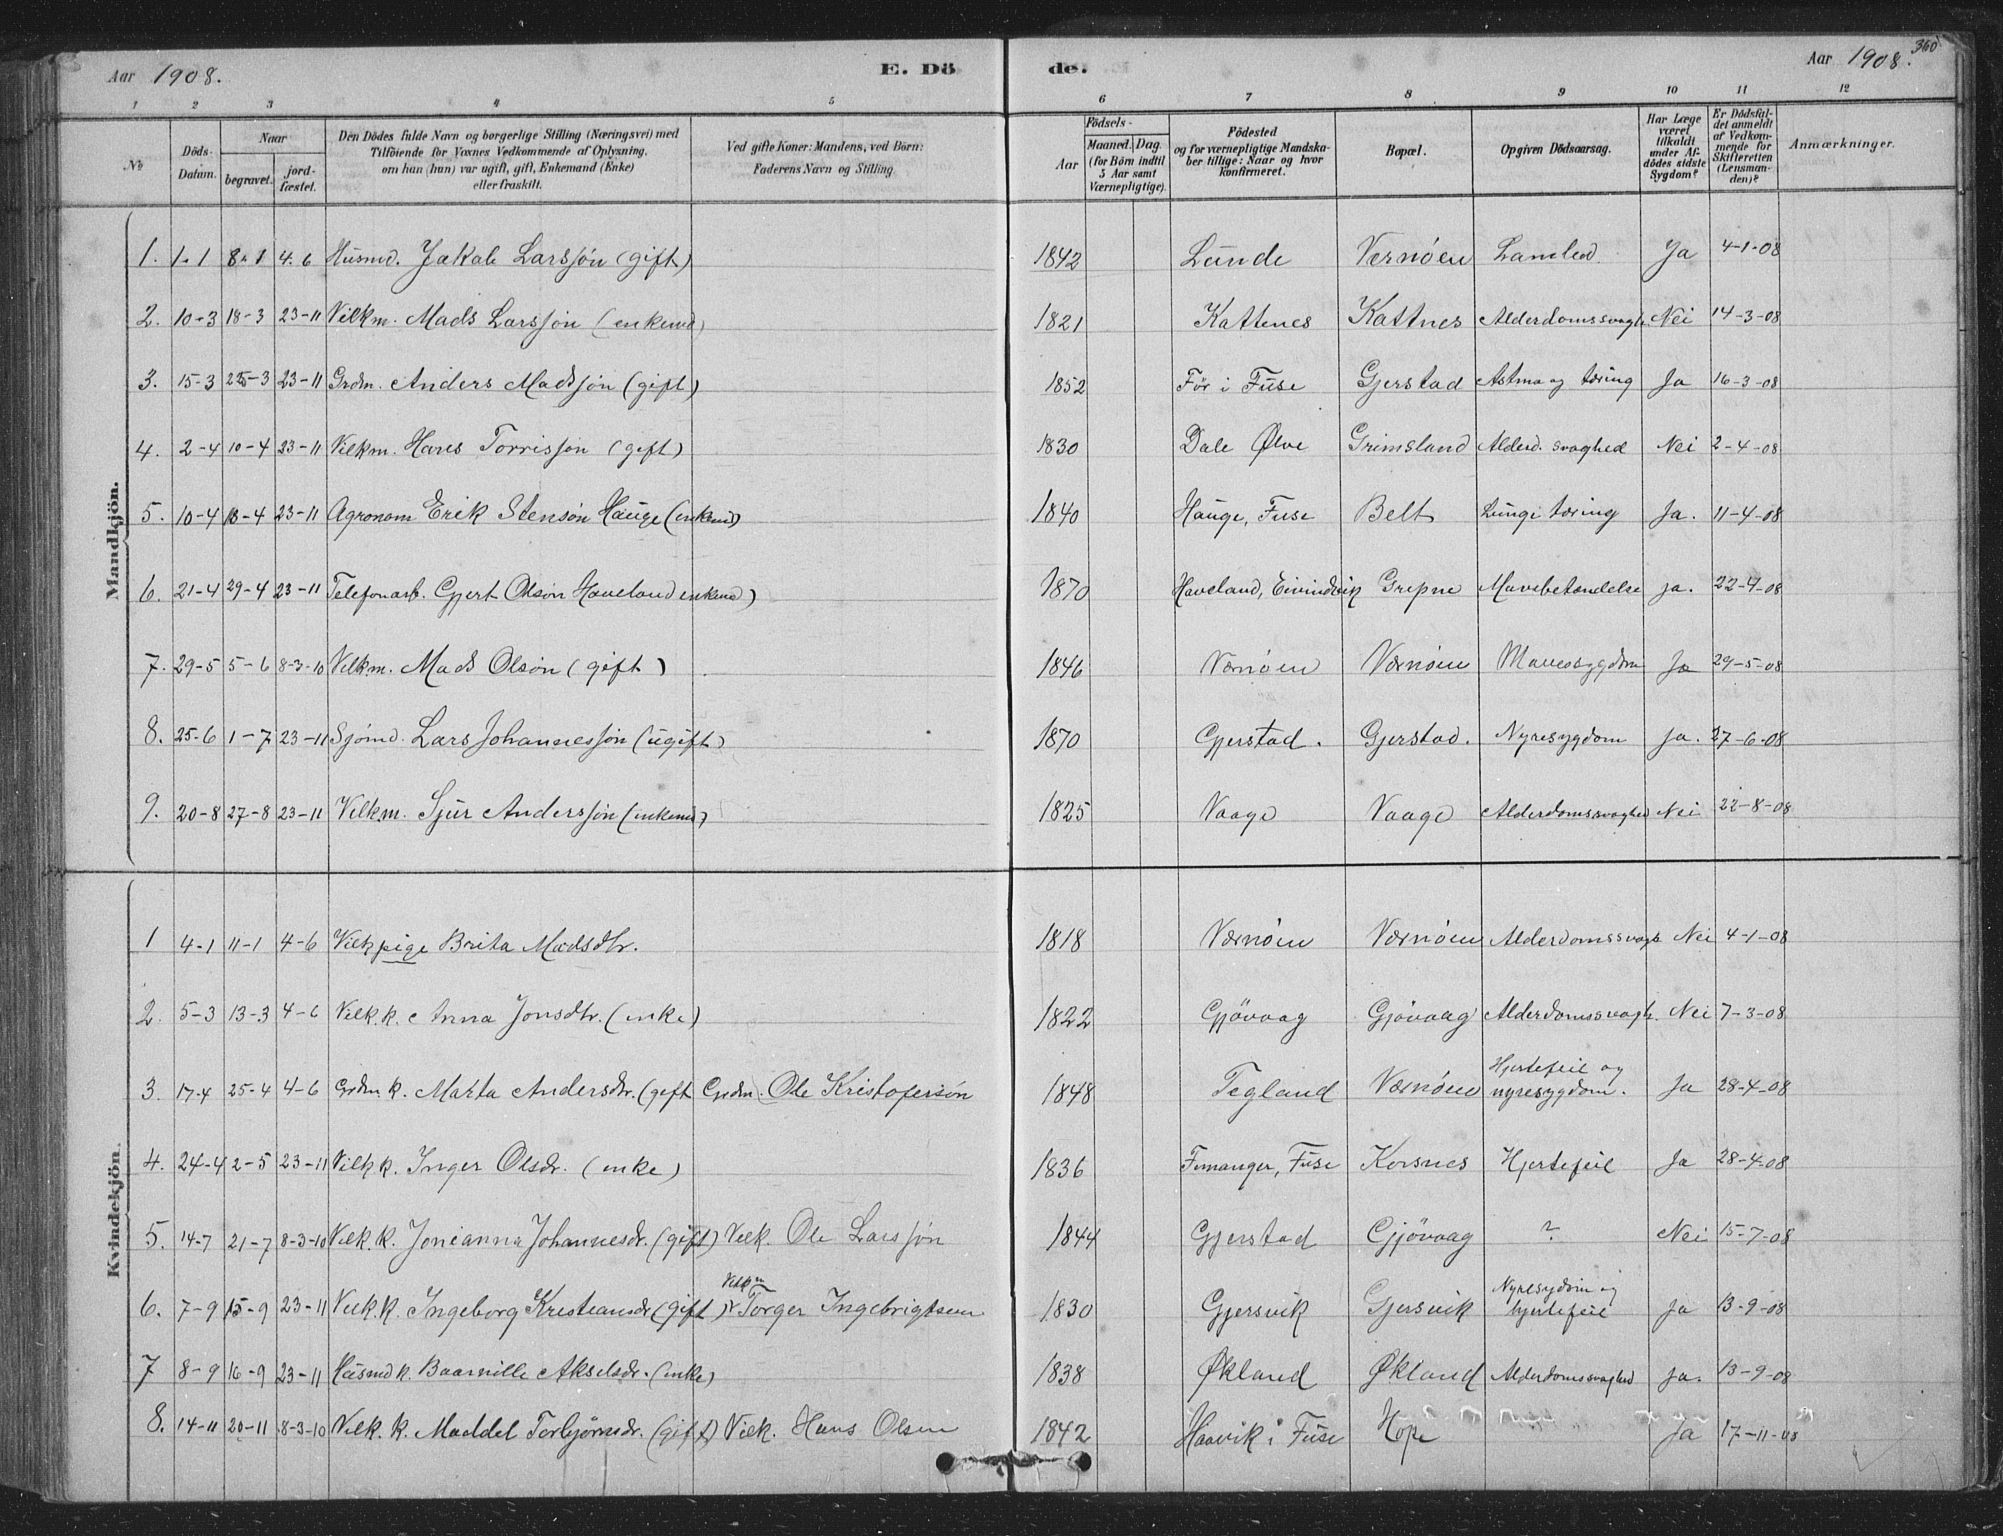 Aar 1908. E. Dö de. Aar 1908. 360
1 2 3 4 5 6 7 8 9 10 11 12
No
Døds-Datum.
Naar
begravet.
jord-fæstet.
Den Dödes fulde Navn og borgerlige Stilling (Næringsvei) med
Tilföiende for Voxnes Vedkommende af Oplysning,
om han (hun) var ugift, gift, Enkemand (Enke)
eller fraskilt.
Ved gifte Koner: Mandens, ved Börn:
Faderens Navn og Stilling.
Födsels-
Aar
Maaned. Dag.
(for Börn indtil
5 Aar samt
Værnepligtige).
Födested
og for værnepligtige Mandska-
ber tillige: Naar og hvor
konfirmeret.
Bopæl.
Opgiven Dödsaarsag.
Har Læge
været
tilkaldt
under Af-
dödes sidste
Sygdom?
Er Dödsfal-
det anmeldt
af Vedkom-
mende for
Skifteretten
(Lensman-
den)?
Anmærkninger.
Mandkjön.
1. 1-1 8-1 4-6 Husmd. Jakob Larssön (gift) 1842 Lunde Vernöen Lamhed. Ja 4-1-08
2. 10-3 18-3 23-11 Vilkm. Mads Larssön (enkemd) 1821 Kattenes Kattnes Alderdomssvagh. Nei 14-3-08
3. 15-3 25-3 23-11 Grdm. Anders Madssön (gift) 1852 För i Fuse Gjerstad Astma og tæring Ja 16-3-08
4. 2-4 10-4 23-11 Vilkm. Hans Torrissön (gift) 1830 Dale Ølve Grimsland Alderd. svaghed Nei 2-4-08
5. 10-4 18-4 23-11 Agronom Erik Stensön Hauge (enkemd) 1840 Hauge, Fuse Belt Lungetæring Ja. 11-4-08
6. 21-4 29-4 23-11 Telefonarb. Gjert Olsön Haveland enkemd) 1870 Haveland, Eivindvik Grepne Mavebetændelse ja. 22-4-08
7. 29-5 5-6 8-3-10 Vilkm. Mads Olsön (gift) 1846 Værnöen Værnöen Mavesygdom Ja 29-5-08
8. 25-6 1-7 23-11 Sjömd. Lars Johannessön (ugift) 1870 Gjerstad. Gjerstad. Nyresygdom ja. 27-6-08
9. 20-8 27-8 23-11 Vilkm. Sjur Anderssön (enkemd) 1825 Vaage Vaage Alderdomssvaghed Nei 22-8-08
Kvindekjön.
1 4-1 11-1 4-6 Vilkpige Brita Madsdtr. 1818 Værnöen Værnöen Alderdomssvagh. Nei 4-1-08
2. 5-3 13-3 4-6 Vilk.k. Anna Jonsdtr. (enke) 1822 Gjövaag Gjövaag Alderdomssvagh. Nei 7-3-08
3. 17-4 25-4 4-6 Grdm k. Marta Andersdr. (gift Grdm. Ole Kristofersön 1848 Tegland Værnöen Hjertefeil og nyresygdom. Ja 28-4-08
4. 24-4 2-5 23-11 Vilk k. Inger Olsdr. (enke) 1836 Femanger, Fuse Korsnes Hjertefeil Ja 28-4-08
5. 14-7 21-7 8-3-10 Vilk.k. Joneanna Johannesdr. (gift) Vilk. Ole Larssön 1844 Gjerstad Gjövaag ? Nei 15-7-08
6. 7-9 15-9 23-11 Vilk.k. Ingeborg Kristiansdr (gift) Vilkm Torger Ingebrigtsen 1830 Gjersvik Gjersvik Nyresygdom og hjertefeil Ja 13-9-08
7 8-9 16-9 23-11 Husmd k. Baarnille Akselsdr. (enke) 1838 Økland Økland Alderdomssvaghed Ja. 13-9-08
8. 14-11 20-11 8-3-10 Vilk. k. Maddel Torbjörnsdr. (gift) Vilk. Hans Olsen 1842 Haavik i Fuse Hope Ja 17-11-08